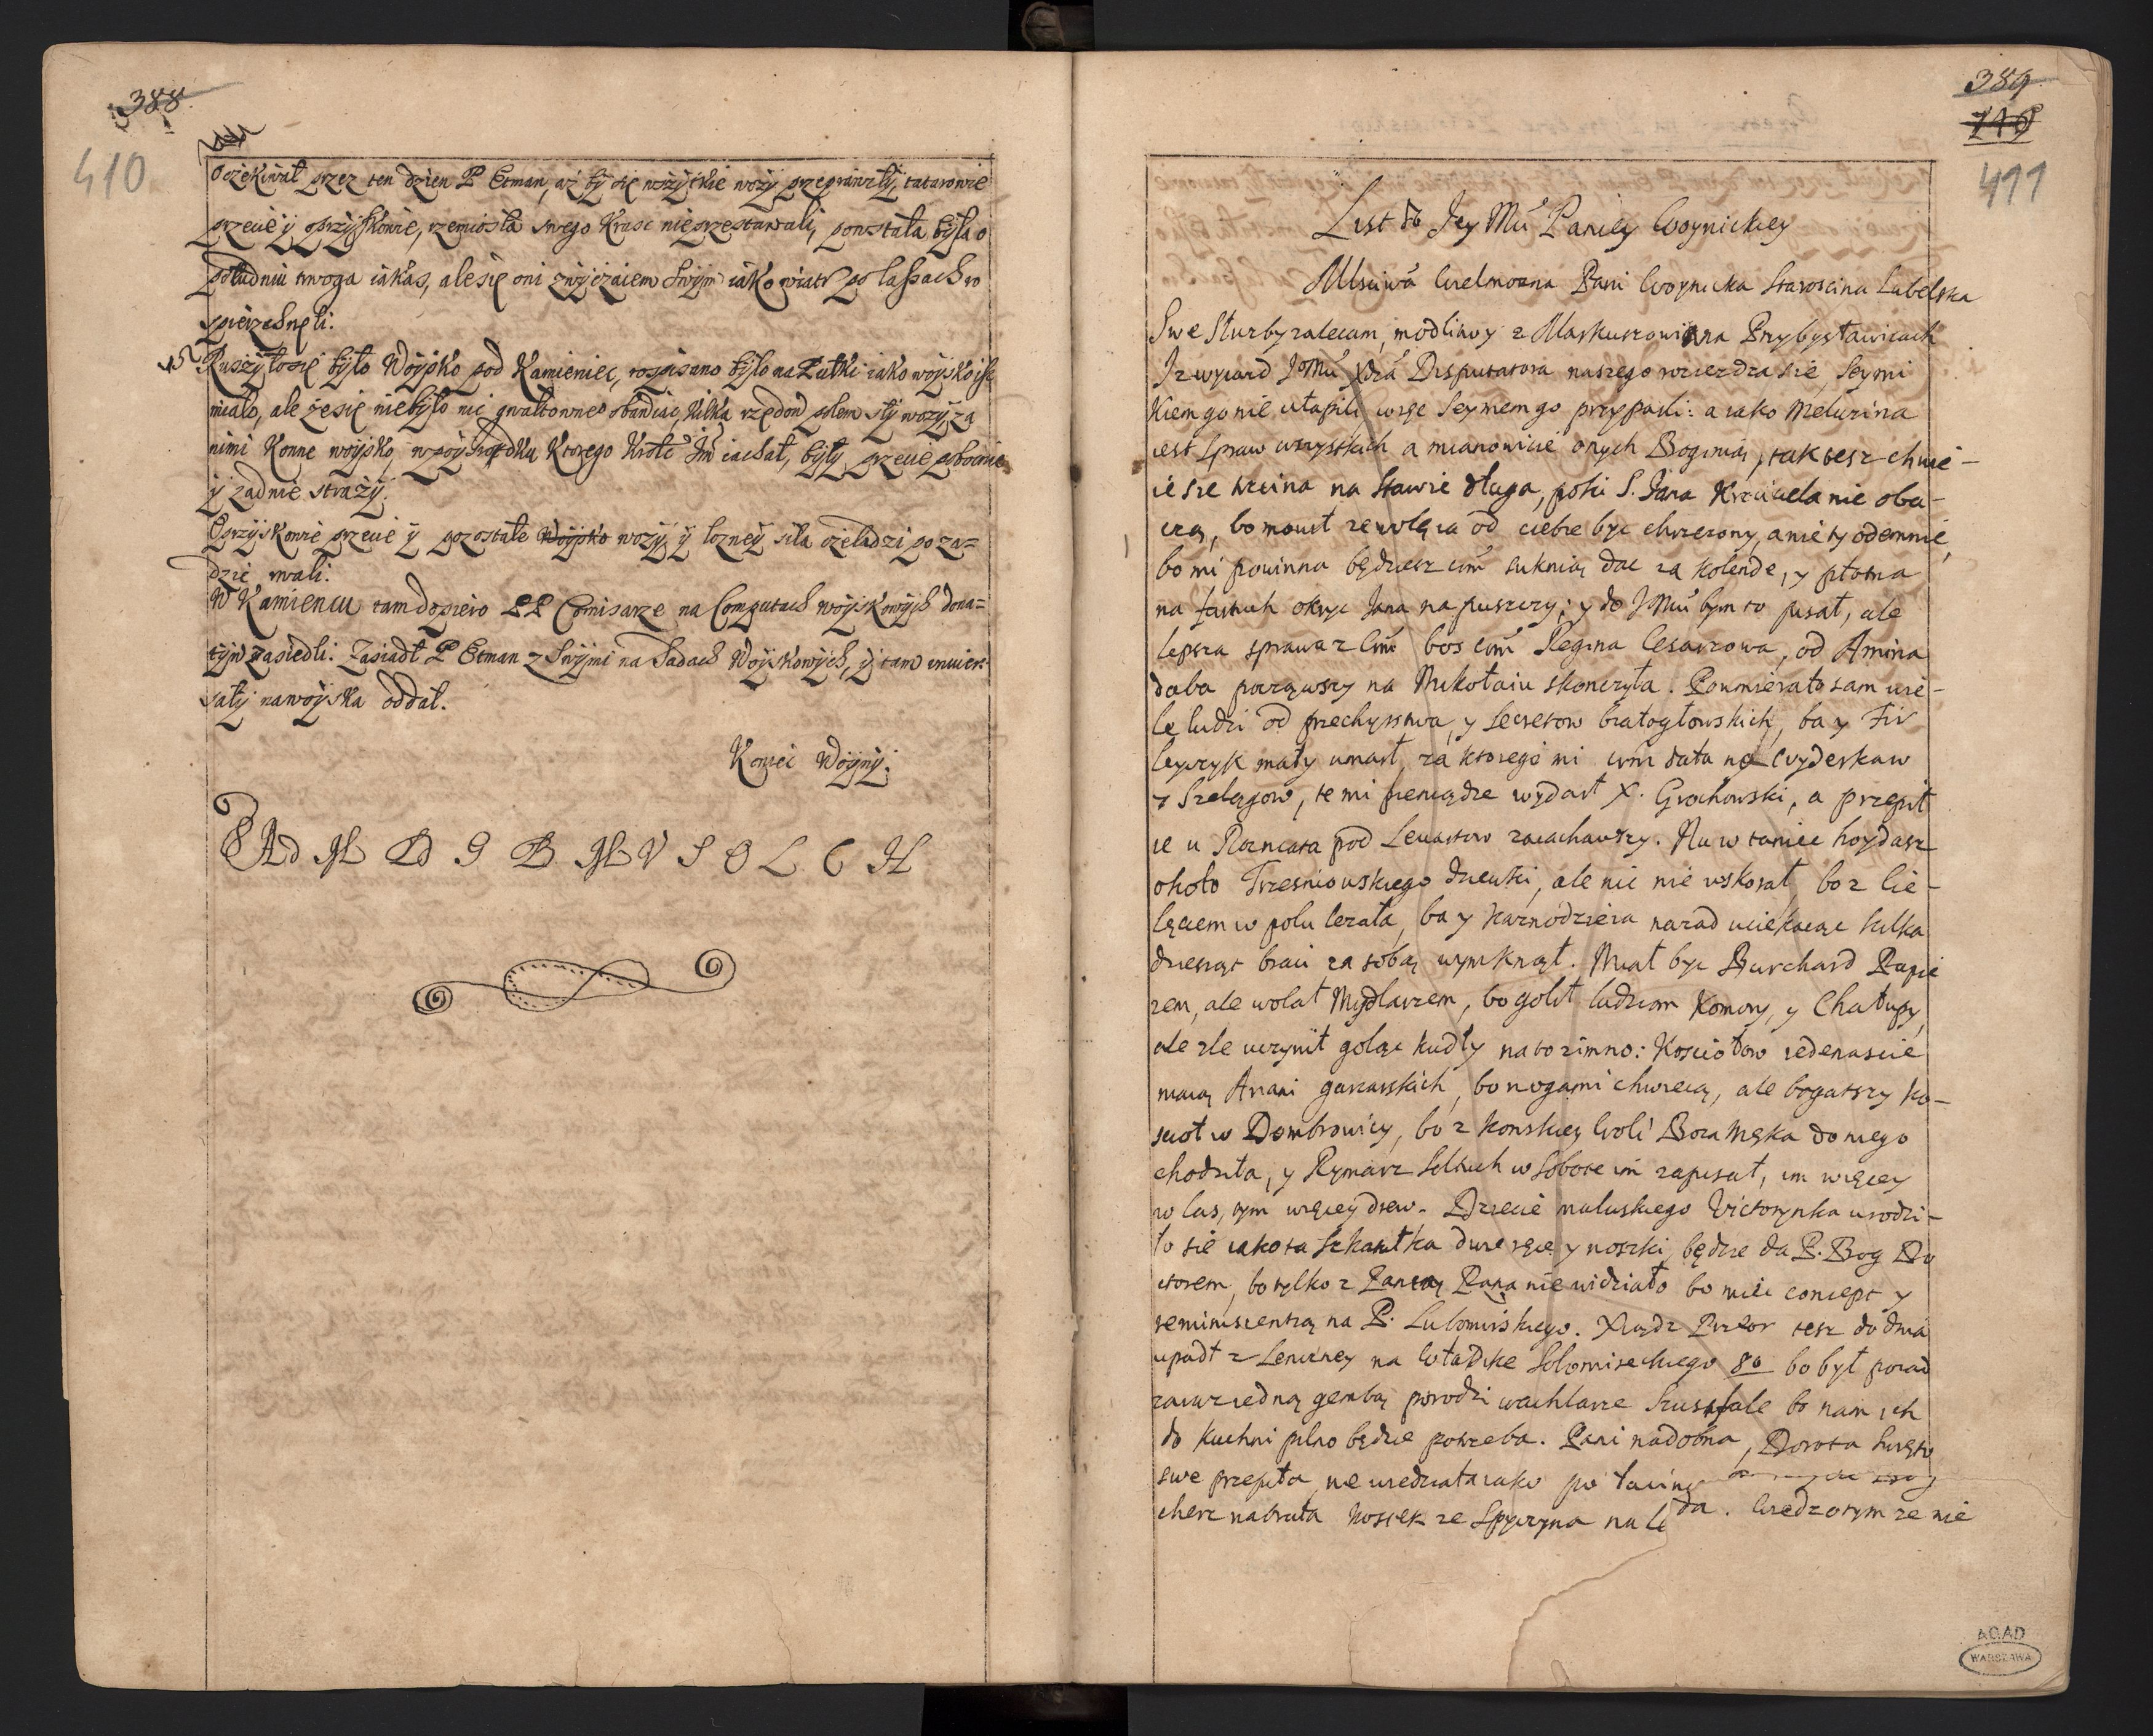 388
410
Oczekiwał przez ten dzien P Etman, aż by się wszytkie wozy przeprawiły, tatarowie
przecie y opryszkowie, rzemiosła swego Krasc nieprzestawali, powstała była o
południu trwoga iakas, ale się oni zwyczaiem swym iako wiatr po lassach ro
spierzchnęli.
15 Ruszyło się było Woysko pod Kamieniec, rospisano było na Pułki iako woysko isc
miało, ale że się niebyło nic gwałtowne° obawiac, kilką rzędow polem szły wozy, za
nimi Konne woysko, w posrzodku Ktorego Krole° Im iachał, były przecie poboczne
y zadnie straży.
Opryskowie przecie y pozostałe Woysko wozy, y lozney siła czeladzi poza-
dzie wali.
W Kamiencu tam dopiero PP Comisarze na Computach woyskowych dona-
tyw zasiedli. Zasiadł P Etman z Swymi na Sadach Woyskowych, y tam uniwer-
sały na woyska oddał.
Koniec Woyny.
Ad M D G B M V S O L C H
389
410
411
List do Jey Mci Paniey Woynickiey
Msciwa Wielmozna Pani Woynicka Staroscina Lubelska
Swe Słuzby zalecam, modliwy z Markuszowianna Przybysławicach
Iz wyiazd JoMci Xdza Disputatora naszego rozjezdza sie, Seymi
Kiem go nie utapili wsze Seymem go przypadli: a iako Meluzina
iest spraw wszystkich a mianowicie onych Boginią, tak tesz chwie-
ie sie trzcina na stawie długa, poki S. Jana Krzciciela nie oba-
czą, bo mowił ze wolę ia od ciebie byc chrzczony, a nie ty odemnie,
bo mi powinna będziesz wm suknią dac za kolende, y płotna
na fartuch okryc Jana na puszczy; y do JoMci bym to pisał, ale
lepsza sprawa z Wm bos wm Regina Cesarzowa, od Amina
daba począwszy na Mikołaiu skonczyła. Poumierało tam wie-
le ludzi od przechyrstwa, y secretow białogłowskich, ba y Fir
leyczyk mały umarł, za ktorego mi wm dała na Wyderkaw
7 Szelągow, te mi pieniądze wydarł X. Grochowski, a przepił
ie u Rozniata pod Lewartow zaiachawszy. Nu w taniec hoydasz
około Trzesniowskiego dziewki, ale nic nie wskorał, bo z Cie-
lęciem w polu lezała, ba y Kaznodzieia nazad uciekaiąc kilka
dziesiąt braci za sobą wymknął. Miał byc Burchard Papie
zem, ale wolał Mydlarzem, bo golił ludziom Komory, y Chałupy,
ale zle uczynił goląc kudły na to zimno: Kosciołow iedenascie
maią Ariani garcarskich, bo nogami chwieią, ale bogatszy ko-
scioł w Dombrowicy, bo z Konskiey Woli Boza Męka do niego
chodziła, y Rymarz Sołtuch w Sobote im zapisał, im więcey
w las, tym więcey drew. Dziecie maluskiego Victorynka urodzi-
ło sie iako ta szkarłka dwie ręce y noszki, będzie da P. Bog Do
ctorem, bo tylko z Panią Pana nie widziało bo mili concept y
reminiscentią na P. Lubomirskiego. Xiądz Prior tesz do dnia
upadł z Leniney na Władike Solomireckiego 80 bo był porad
zawrziedną gembą porodzi wachlarze Szusfale bo nam ich
do Kuchni pilno będzie potrzeba. Pani nadobna, Dorota Swięto
swe przepiła, nie wiedziała iako po łacinie
cherz nabrała kostek ze Spyczyna na Le da. Wiedz o tym ze nie
AGAD
WARSZAWA